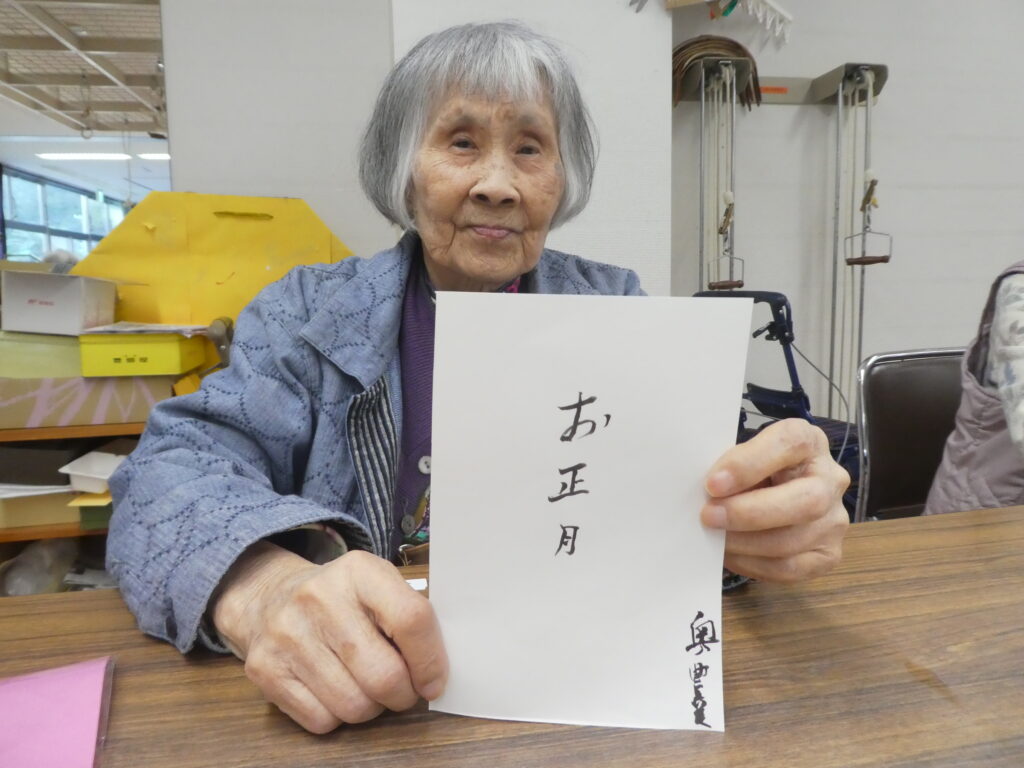 お正月
奥